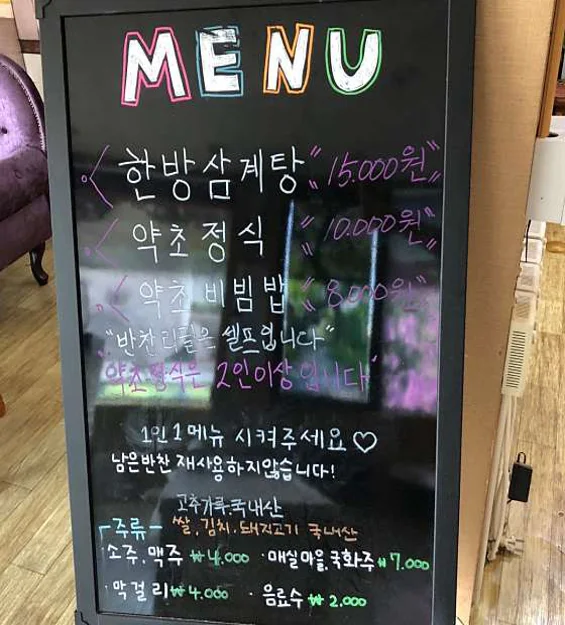 MENU
한방삼계탕 "15.000원"
약초정식 "10.000원"
약초비빔밥 "8.000원"
"반찬리필은 셀프입니다"
"약초정식은 2인이상입니다"
1인1메뉴 시켜주세요♡
남은반찬 재사용하지않습니다!
고추가루국내산
주류- 쌀.김치.돼지고기 국내산
·소주.맥주 ₩4.000 ·매실마을,국화주 ₩7.000
·막걸리 ₩4.000 ·음료수 ₩2.000